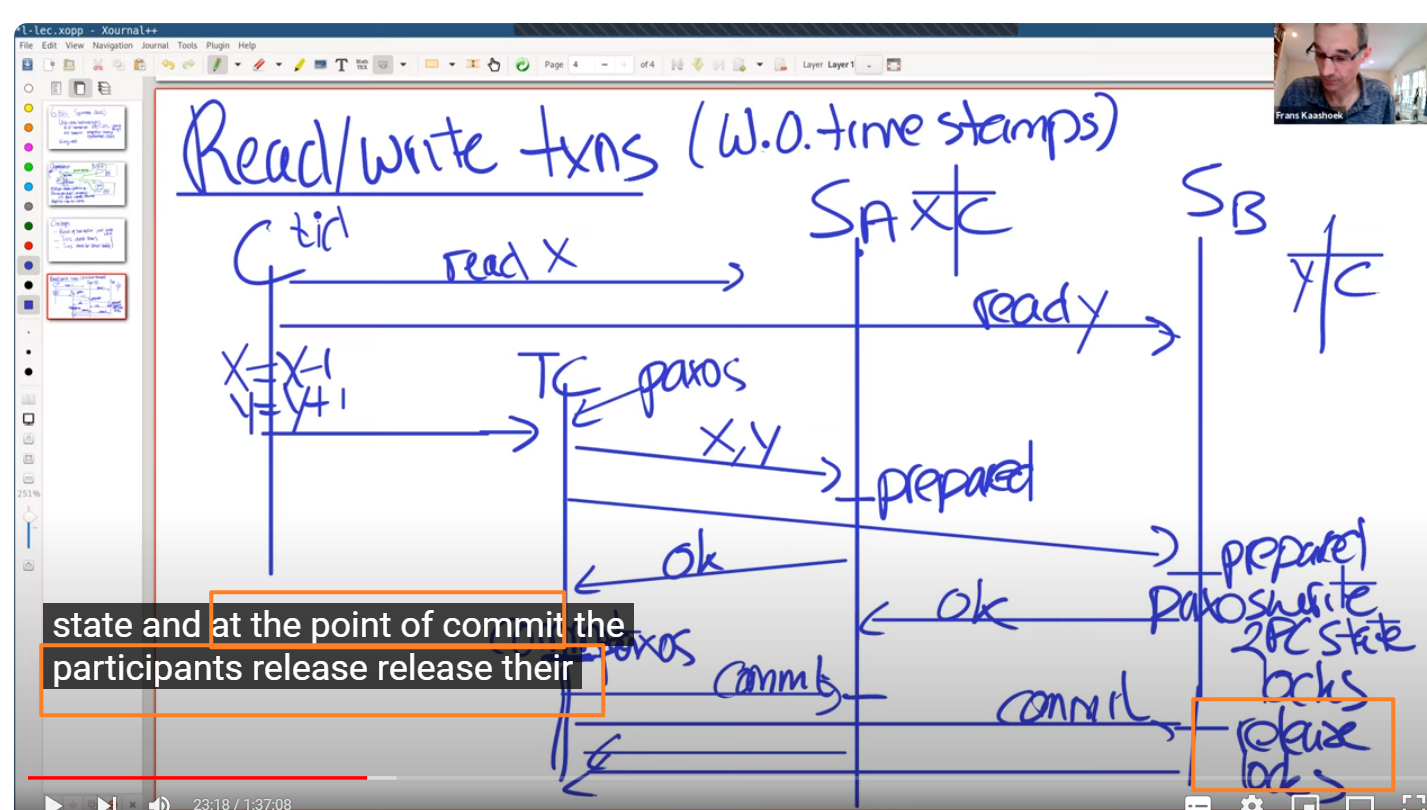 *l-lec.xopp - Xournal++
File Edit View Navigation Journal Tools Plugin Help
Page 4 of 4 Layer Layer 1
Frans Kaashoek
Read/write txns (W.O. time stamps)
C tid
SA X C
SB
Y C
read X
read y
X=X-1
y=y+1
TC paxos
X,y
prepared
prepared
ok
ok
paxos write
2PC state
locks
paxos
commit
commit
release
locks
251%
state and at the point of commit the
participants release release their
23:18 / 1:37:08